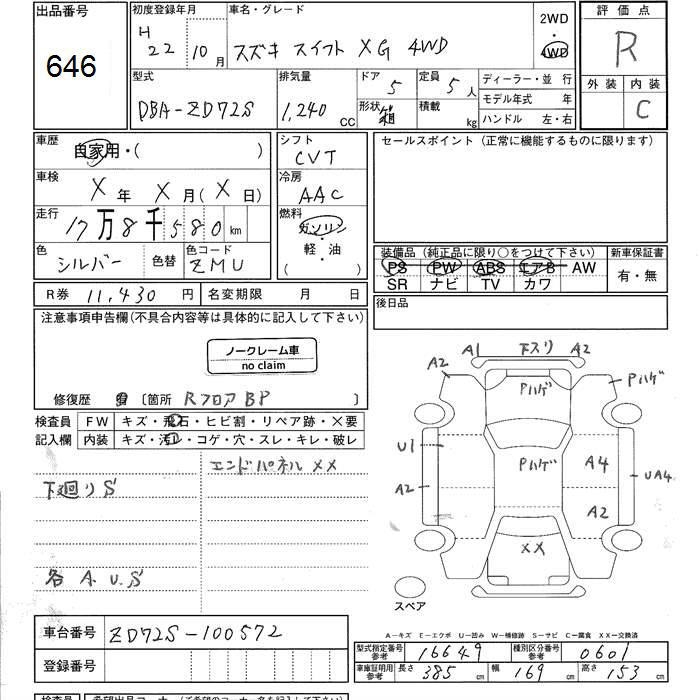 出品番号
646
初度登録年月
H
22 10 月
車名・グレード
スズキ スイフト XG 4WD
2WD
4WD
評価点
R
外装 内装
C
型式
DBA-ZD72S
排気量
1,240 CC
ドア 5
形状 箱
定員 5 人
積載 kg
ディーラー・並 行
モデル年式 年
ハンドル 左・右
車歴
自家用・( )
車検
X 年 X 月 ( X 日)
走行
17 万 8 千 5 8 0 km
色
シルバー
色替
色コード
ZMU
シフト
CVT
冷房
AAC
燃料
ガソリン
・
軽・油
( )
セールスポイント (正常に機能するものに限ります)
装備品 (純正品に限り○をつけて下さい)
新車保証書
PS PW ABS エアB AW
SR ナビ TV カワ
有・無
後日品
R券 11,430 円
名変期限 月 日
注意事項申告欄(不具合内容等は具体的に記入して下さい)
ノークレーム車
no claim
修復歴 〔箇所 Rフロア BP 〕
検査員
記入欄
FW キズ・飛石・ヒビ割・リペア跡・×要
内装 キズ・汚レ・コゲ・穴・スレ・キレ・破レ
エンドパネル XX
下廻り S
各 A. U. S
A2
A1
下スリ
A2
Pハゲ
Pハゲ
U1
Pハゲ
A4
UA4
A2
A2
XX
スペア
A-キズ E-エクボ U-凹み W-補修跡 S-サビ C-腐食 XX-交換済
車台番号
ZD72S-100572
登録番号
型式指定番号
参考
16649
種別区分番号
参考
0601
車庫証明用
参考
長さ 385 cm
幅 169 cm
高さ 153 cm